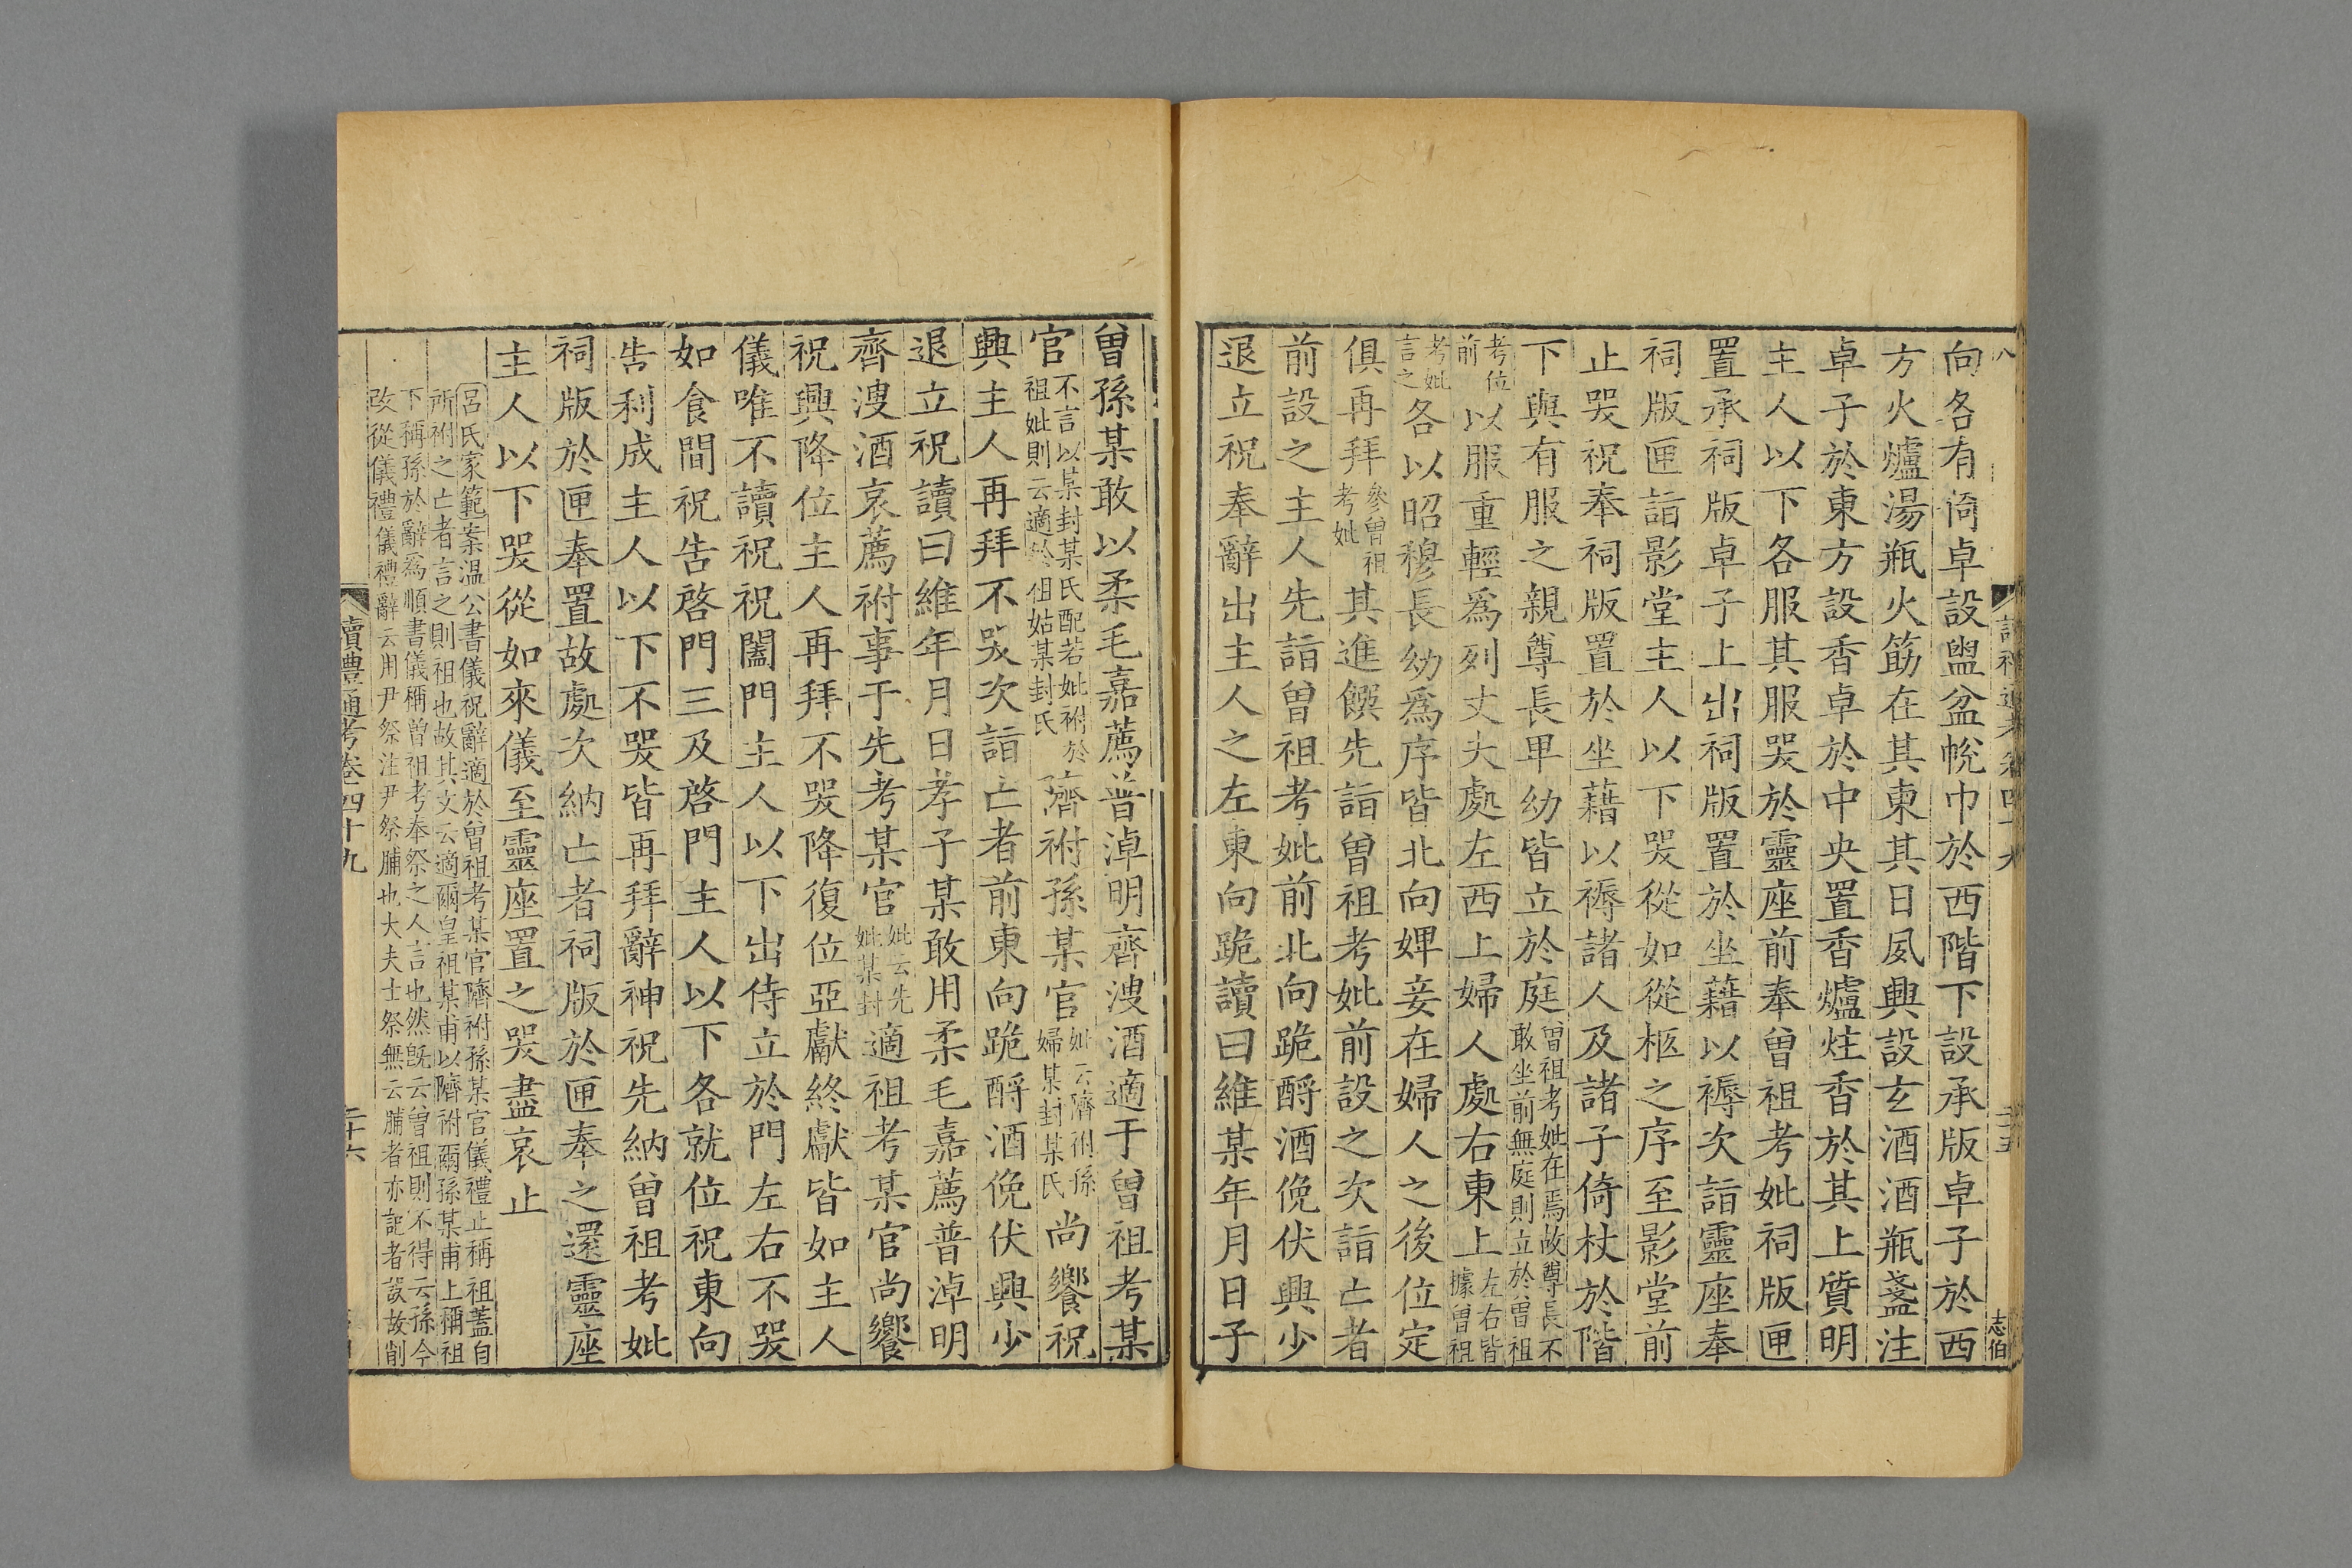 向各有倚卓設盥盆帨巾於西階下設承版卓子於西
方火爐湯瓶火筯在其東其日夙興設玄酒酒瓶盞注
卓子於東方設香卓於中央置香爐炷香於其上質明
主人以下各服其服哭於靈座前奉曾祖考妣祠版匣
置承祠版卓子上出祠版置於坐藉以褥次詣靈座奉
祠版匣詣影堂主人以下哭從如從柩之序至影堂前
止哭祝奉祠版置於坐藉以褥諸人及諸子倚杖於階
下與有服之親尊長卑幼皆立於庭曾祖考妣在焉故尊長不敢坐前無庭則立於曾祖
考位前以服重輕爲列丈夫處左西上婦人處右東上左右皆據曾祖
考妣言之各以昭穆長幼爲序皆北向婢妾在婦人之後位定
俱再拜參曾祖考妣其進饌先詣曾祖考妣前設之次詣亡者
前設之主人先詣曾祖考妣前北向跪酹酒俛伏興少
退立祝奉辭出主人之左東向跪讀曰維某年月日子
曾孫某敢以柔毛嘉薦普淖明齊溲酒適于曾祖考某
官不言以某封某氏配若妣祔於祖妣則云適於祖姑某封某氏隮祔孫某官妣云隮祔孫婦某封某氏尚饗祝
興主人再拜不哭次詣亡者前東向跪酹酒俛伏興少
退立祝讀曰維年月日孝子某敢用柔毛嘉薦普淖明
齊溲酒哀薦祔事于先考某官妣云先妣某封適祖考某官尚饗
祝興降位主人再拜不哭降復位亞獻終獻皆如主人
儀唯不讀祝祝闔門主人以下出侍立於門左右不哭
如食間祝告啓門三及啓門主人以下各就位祝東向
告利成主人以下不哭皆再拜辭神祝先納曾祖考妣
祠版於匣奉置故處次納亡者祠版於匣奉之還靈座
主人以下哭從如來儀至靈座置之哭盡哀止
呂氏家範案温公書儀祝辭適於曾祖考某官隮祔孫某官儀禮止稱祖蓋自
所祔之亡者言之則祖也故其文云適爾皇祖某甫以隮祔爾孫某甫上稱祖
下稱孫於辭爲順書儀稱曾祖考奉祭之人言也然旣云曾祖則不得云孫今
改從儀禮儀禮辭云用尹祭注尹祭脯也大夫士祭無云脯者亦記者誤故削
讀禮通考卷四十九
二十六
志伯